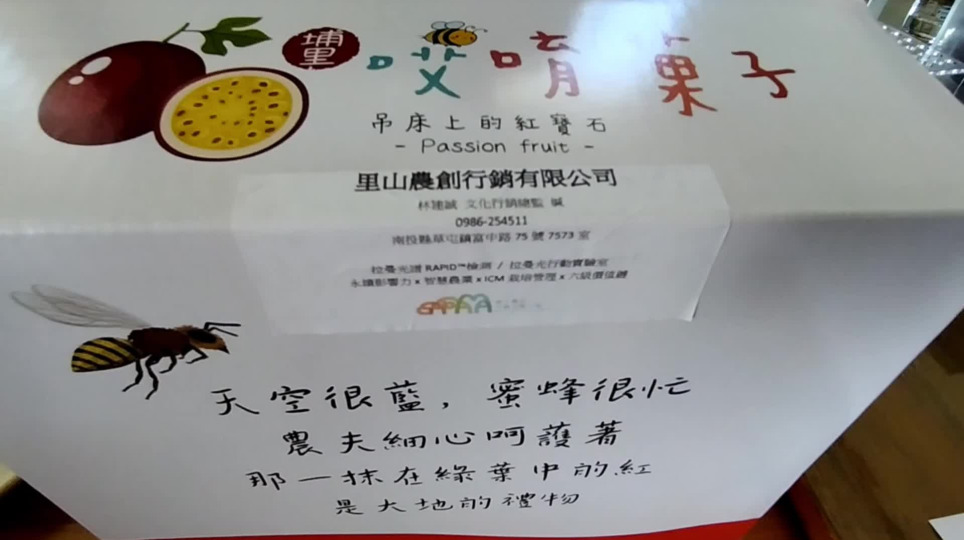 埔里
哎唷菓子
吊床上的紅寶石
- Passion fruit -
里山農創行銷有限公司
林建誠 文化行銷總監
0986-254511
南投縣草屯鎮富中路 75 號 7573 室
拉曼光譜 RAPID™檢測 / 拉曼光行動實驗室
永續影響力 x 智慧農業 x ICM 栽培管理 x 六級價值鏈
天空很藍，蜜蜂很忙
農夫細心呵護著
那一抹在綠葉中的紅
是大地的禮物